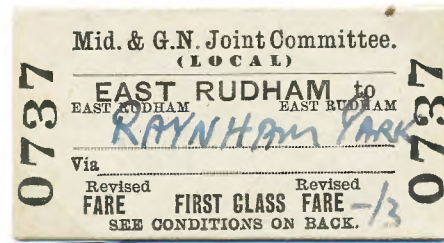 Mid. & G.N. Joint Committee.
(LOCAL)
EAST RUDHAM to
EAST RUDHAM EAST RUDHAM
RAYNHAM PARK
Via
Revised Revised
FARE FIRST CLASS FARE -/3
SEE CONDITIONS ON BACK.
0737
0737